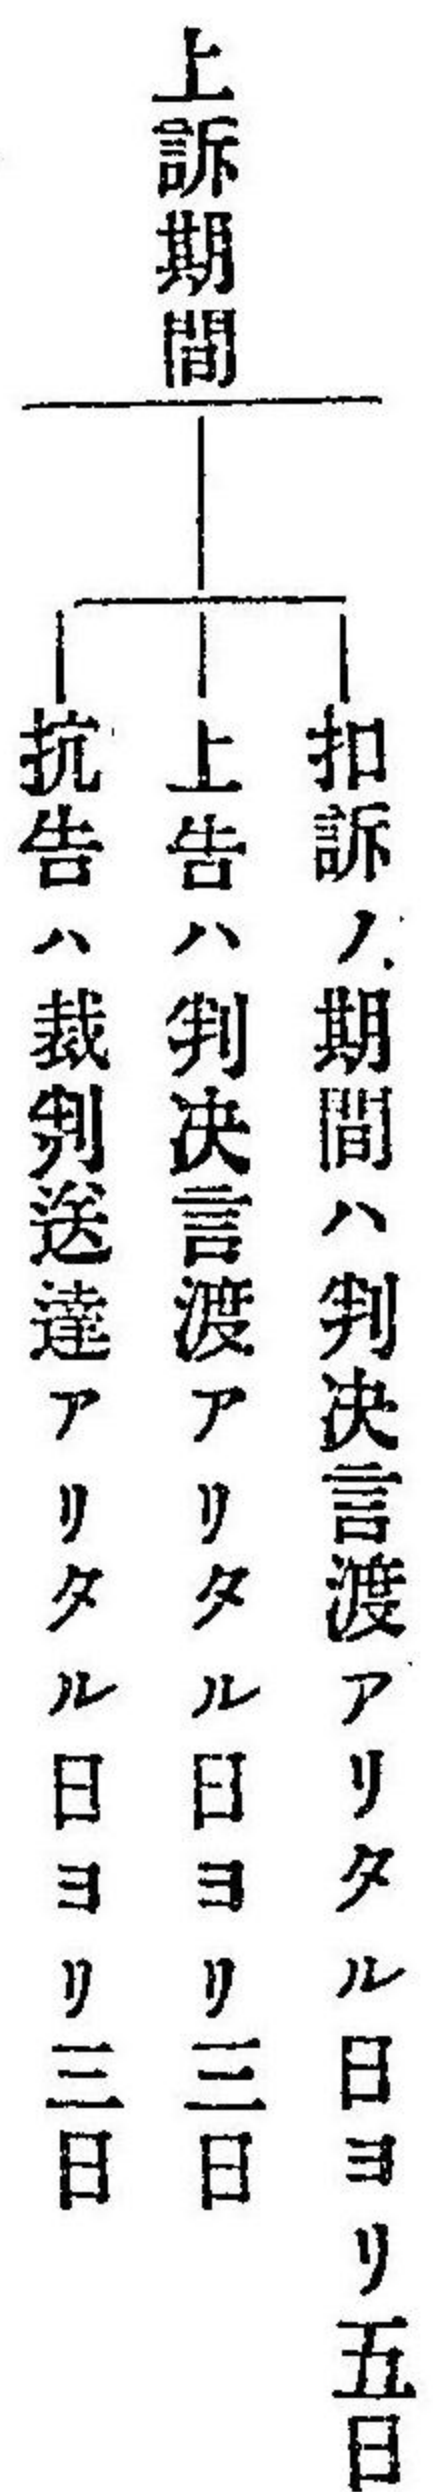 上訴期間
扣訴ノ期間ハ判决言渡アリタル日ヨリ五日
上告ハ判决言渡アリタル日ヨリ三日
抗告ハ裁判送達アリタル日ヨリ三日